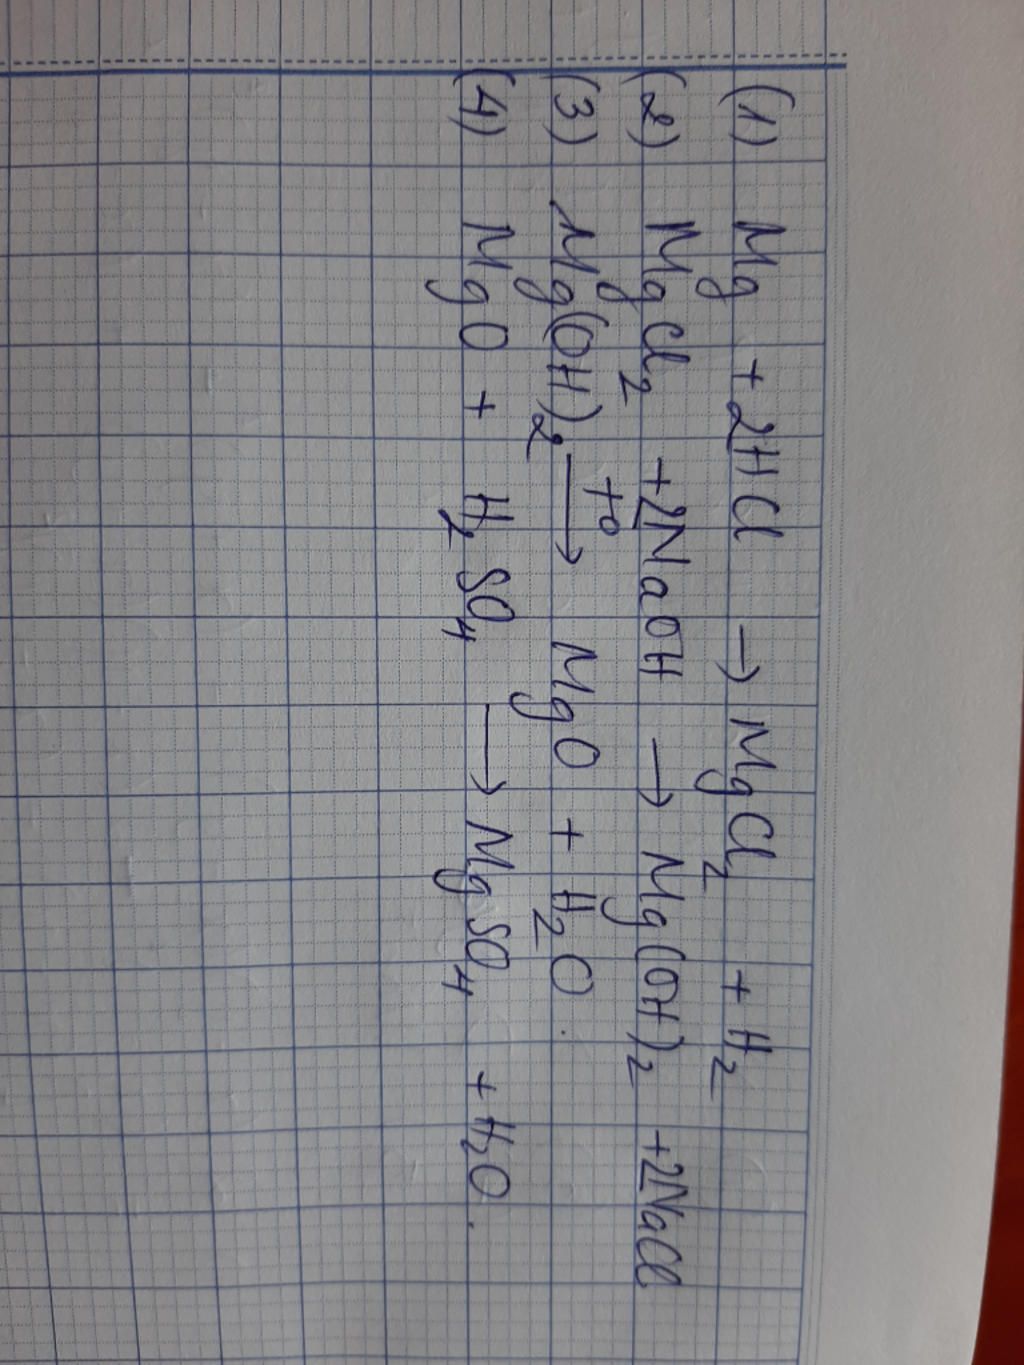 (1) Mg + 2HCl → MgCl₂ + H₂
(2) MgCl₂ + 2NaOH → Mg(OH)₂ + 2NaCl
(3) Mg(OH)₂ —t°→ MgO + H₂O.
(4) MgO + H₂SO₄ → MgSO₄ + H₂O.